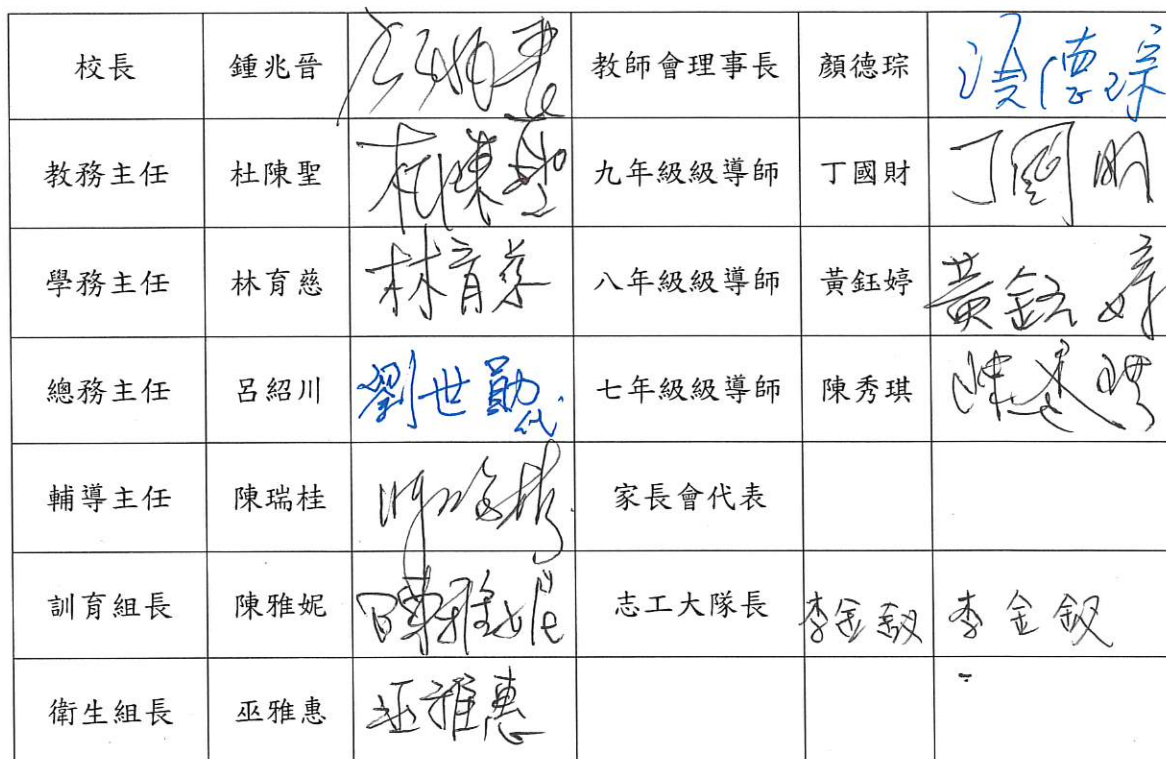 校長 鍾兆晉 教師會理事長 顏德琮
教務主任 杜陳聖 杜陳聖 九年級級導師 丁國財 丁國
學務主任 林育慈 林育慈 八年級級導師 黃鈺婷 黃鈺婷
總務主任 呂紹川 劉世勛代 七年級級導師 陳秀琪 陳秀琪
輔導主任 陳瑞桂 家長會代表
訓育組長 陳雅妮 陳雅妮 志工大隊長 李金釵 李金釵
衛生組長 巫雅惠 巫雅惠